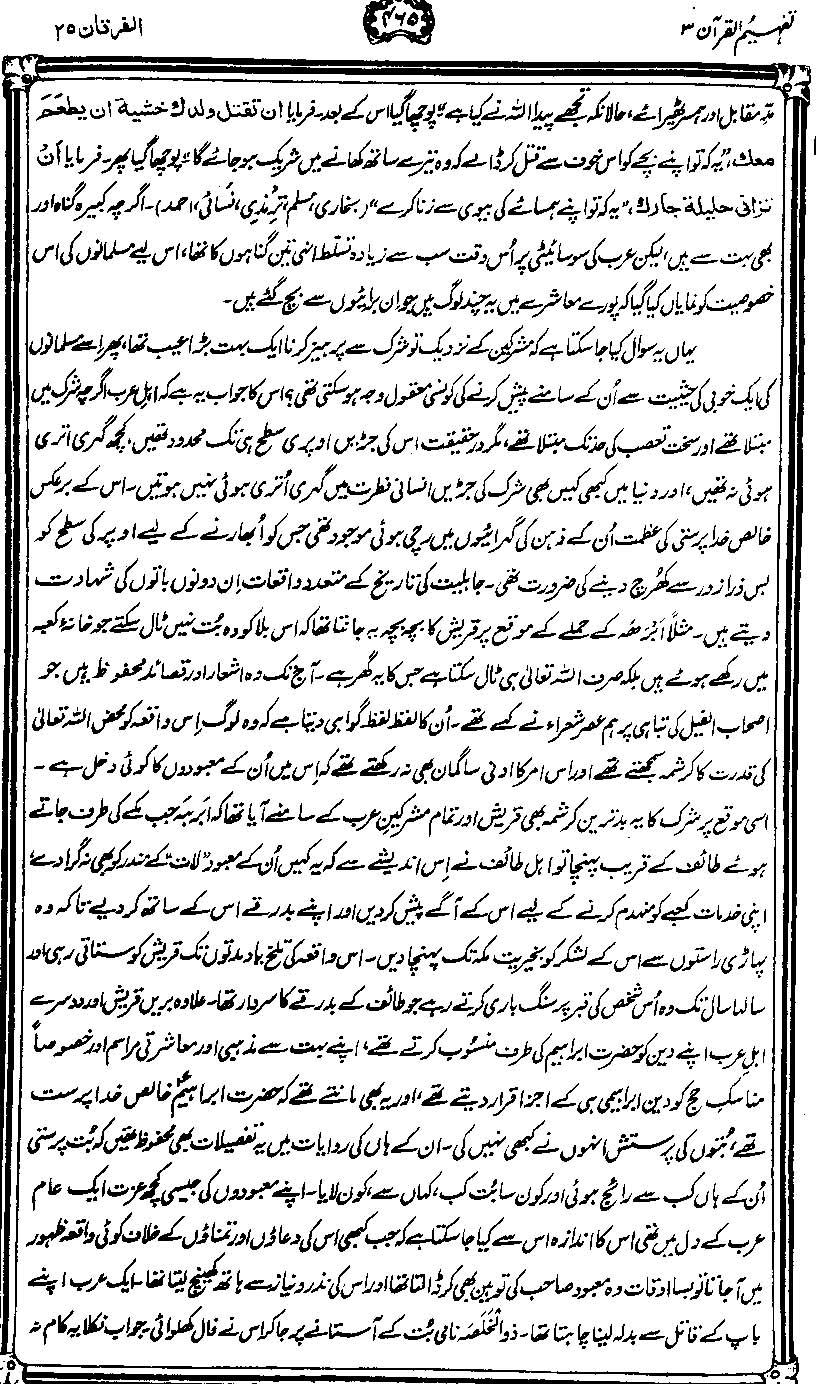 تفہیم القرآن ۳
۴۶۵
الفرقان ۲۵
مدِّ مقابل اور ہمسر ٹھیرائے، حالانکہ تجھے پیدا اللہ نے کیا ہے"۔ پوچھا گیا اس کے بعد۔ فرمایا ان تقتل ولدك خشیة ان یطعم
معك، "یہ کہ تو اپنے بچے کو اس خوف سے قتل کر ڈالے کہ وہ تیرے ساتھ کھانے میں شریک ہو جائے گا"۔ پوچھا گیا پھر۔ فرمایا ان
تزانی حلیلة جارك، "یہ کہ تو اپنے ہمسائے کی بیوی سے زنا کرے" (بخاری، مسلم، ترمذی، نسائی، احمد)۔ اگرچہ کبیرہ گناہ اور
بھی بہت سے ہیں، لیکن عرب کی سوسائیٹی پر اُس وقت سب سے زیادہ تسلط انہی تین گناہوں کا تھا، اس لیے مسلمانوں کی اس
خصوصیت کو نمایاں کیا گیا کہ پورے معاشرے میں یہ چند لوگ ہیں جو ان برائیوں سے بچ گئے ہیں۔
یہاں یہ سوال کیا جا سکتا ہے کہ مشرکین کے نزدیک تو شرک سے پرہیز کرنا ایک بہت بڑا عیب تھا، پھر اسے مسلمانوں
کی ایک خوبی کی حیثیت سے اُن کے سامنے پیش کرنے کی کونسی معقول وجہ ہو سکتی تھی؟ اس کا جواب یہ ہے کہ اہلِ عرب اگرچہ شرک میں
مبتلا تھے اور سخت تعصب کی حد تک مبتلا تھے، مگر درحقیقت اس کی جڑیں اوپری سطح ہی تک محدود تھیں، کچھ گہری اتری
ہوئی نہ تھیں، اور دنیا میں کبھی کہیں بھی شرک کی جڑیں انسانی فطرت میں گہری اُتری ہوئی نہیں ہوتیں۔ اس کے برعکس
خالص خدا پرستی کی عظمت اُن کے ذہن کی گہرائیوں میں رچی ہوئی موجود تھی جس کو اُبھارنے کے لیے اوپر کی سطح کو
بس ذرا زور سے کھرچ دینے کی ضرورت تھی۔ جاہلیت کی تاریخ کے متعدد واقعات اِن دونوں باتوں کی شہادت
دیتے ہیں۔ مثلاً اَبْرَھہ کے حملے کے موقع پر قریش کا بچہ بچہ یہ جانتا تھا کہ اس بلا کو وہ بُت نہیں ٹال سکتے جو خانۂ کعبہ
میں رکھے ہوئے ہیں بلکہ صرف اللہ تعالیٰ ہی ٹال سکتا ہے جس کا یہ گھر ہے۔ آج تک وہ اشعار اور قصائد محفوظ ہیں جو
اصحاب الفیل کی تباہی پر ہم عصر شعراء نے کہے تھے۔ اُن کا لفظ لفظ گواہی دیتا ہے کہ وہ لوگ اِس واقعہ کو محض اللہ تعالیٰ
کی قدرت کا کرشمہ سمجھتے تھے اور اس امر کا ادنیٰ سا گمان بھی نہ رکھتے تھے کہ اِس میں اُن کے معبودوں کا کوئی دخل ہے۔
اسی موقع پر شرک کا یہ بدترین کرشمہ بھی قریش اور تمام مشرکینِ عرب کے سامنے آیا تھا کہ ابرہہ جب مکے کی طرف جاتے
ہوئے طائف کے قریب پہنچا تو اہل طائف نے اِس اندیشے سے کہ یہ کہیں اُن کے معبود "لات" کے مندر کو بھی نہ گرا دے،
اپنی خدمات کعبے کو منہدم کرنے کے لیے اس کے آگے پیش کر دیں اور اپنے بدرقے اس کے ساتھ کر دیے تاکہ وہ
پہاڑی راستوں سے اس کے لشکر کو بخیریت مکہ تک پہنچا دیں۔ اس واقعہ کی تلخ یاد مدتوں تک قریش کو ستاتی رہی اور
سالہا سال تک وہ اُس شخص کی قبر پر سنگ باری کرتے رہے جو طائف کے بدرقے کا سردار تھا۔ علاوہ بریں قریش اور دوسرے
اہلِ عرب اپنے دین کو حضرت ابراہیم کی طرف منسوب کرتے تھے، اپنے بہت سے مذہبی اور معاشرتی مراسم اور خصوصاً
مناسکِ حج کو دین ابراہیمی ہی کے اجزا قرار دیتے تھے، اور یہ بھی مانتے تھے کہ حضرت ابراہیمؑ خالص خدا پرست
تھے، بُتوں کی پرستش انہوں نے کبھی نہیں کی۔ ان کے ہاں کی روایات میں یہ تفصیلات بھی محفوظ تھیں کہ بُت پرستی
اُن کے ہاں کب سے رائج ہوئی اور کون سا بُت کب، کہاں سے، کون لایا۔ اپنے معبودوں کی جیسی کچھ عزت ایک عام
عرب کے دل میں تھی اس کا اندازہ اس سے کیا جا سکتا ہے کہ جب کبھی اس کی دعاؤں اور تمناؤں کے خلاف کوئی واقعہ ظہور
میں آجاتا تو بسا اوقات وہ معبود صاحب کی توہین بھی کر ڈالتا تھا اور اس کی نذر و نیاز سے ہاتھ کھینچ لیتا تھا۔ ایک عرب اپنے
باپ کے قاتل سے بدلہ لینا چاہتا تھا۔ ذوالخَلَصَہ نامی بُت کے آستانے پر جا کر اس نے فال کھلوائی جواب نکلا یہ کام نہ